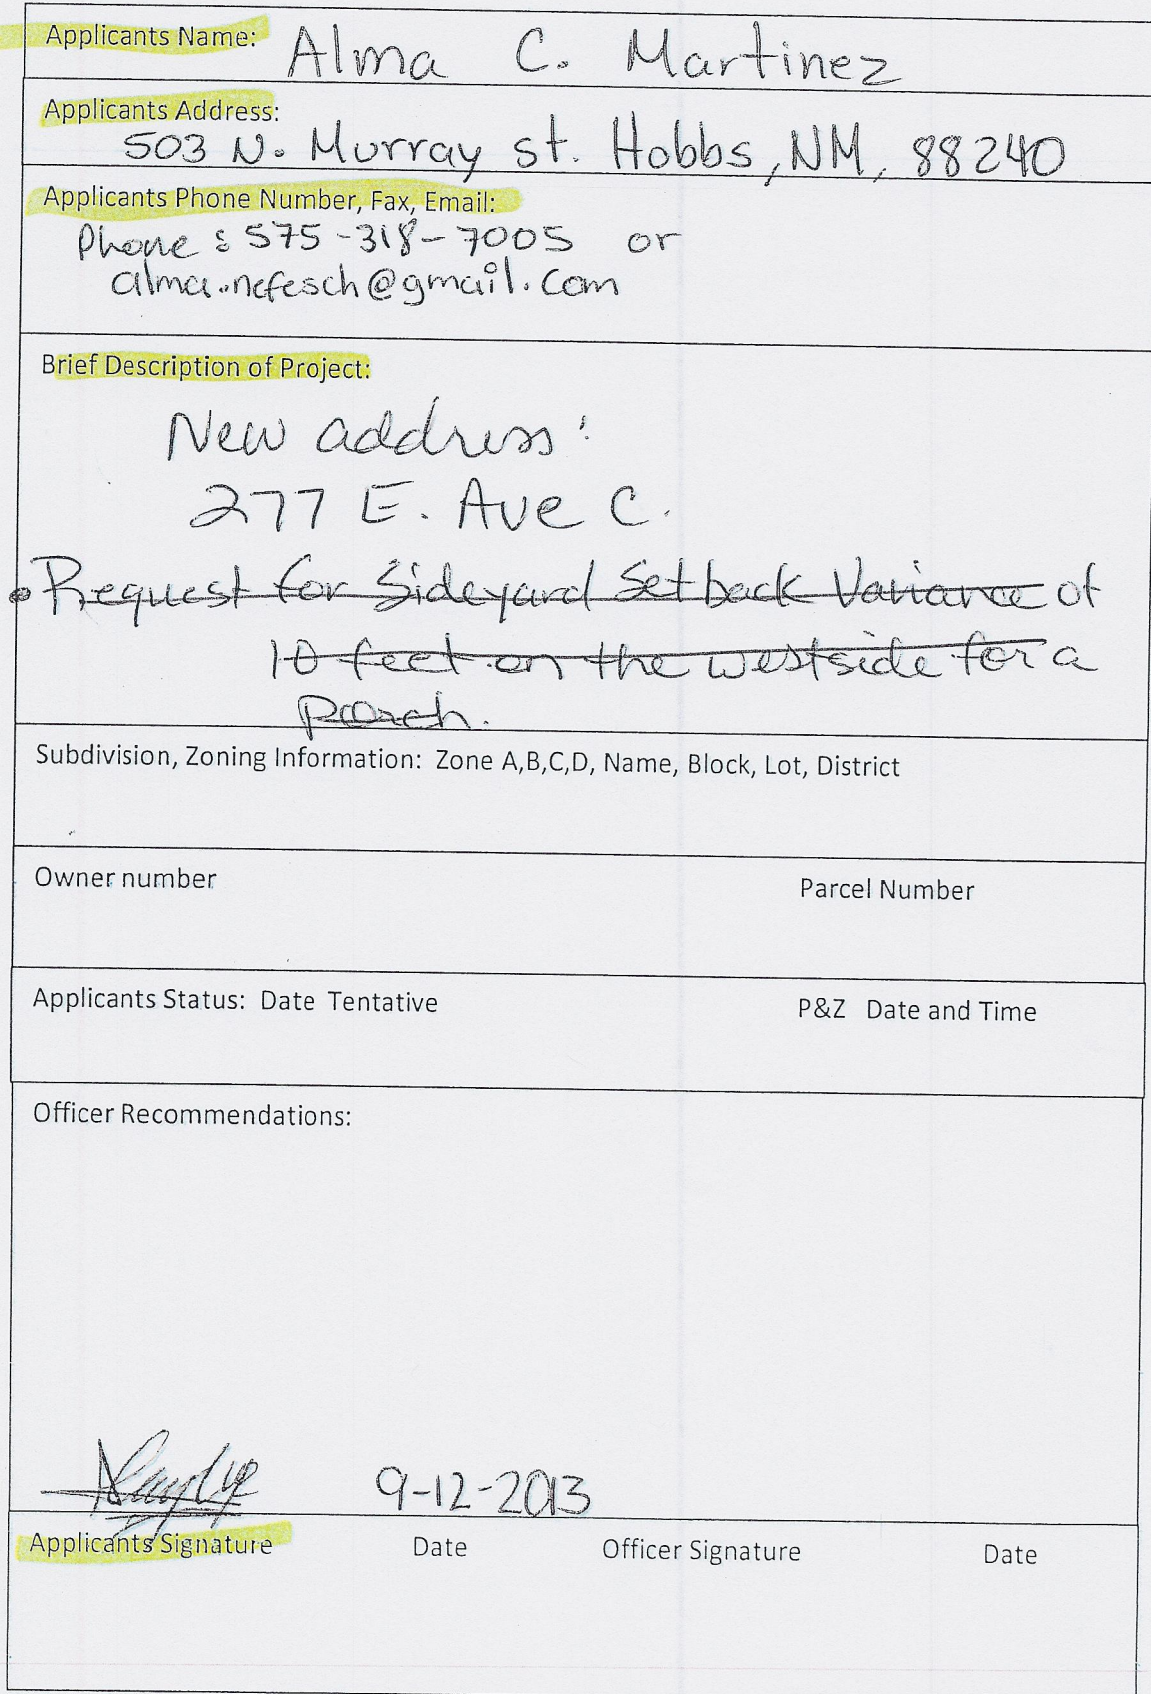 Applicants Name: Alma C. Martinez
Applicants Address:
503 N. Murray st. Hobbs, NM, 88240
Applicants Phone Number, Fax, Email:
Phone : 575-318-7005 or
alma.nefesch@gmail.com
Brief Description of Project:
New address:
277 E. Ave C.
Request for Sideyard Setback Variance of
10 feet on the westside for a
porch.
Subdivision, Zoning Information: Zone A,B,C,D, Name, Block, Lot, District
Owner number Parcel Number
Applicants Status: Date Tentative P&Z Date and Time
Officer Recommendations:
9-12-2013
Applicants Signature Date Officer Signature Date